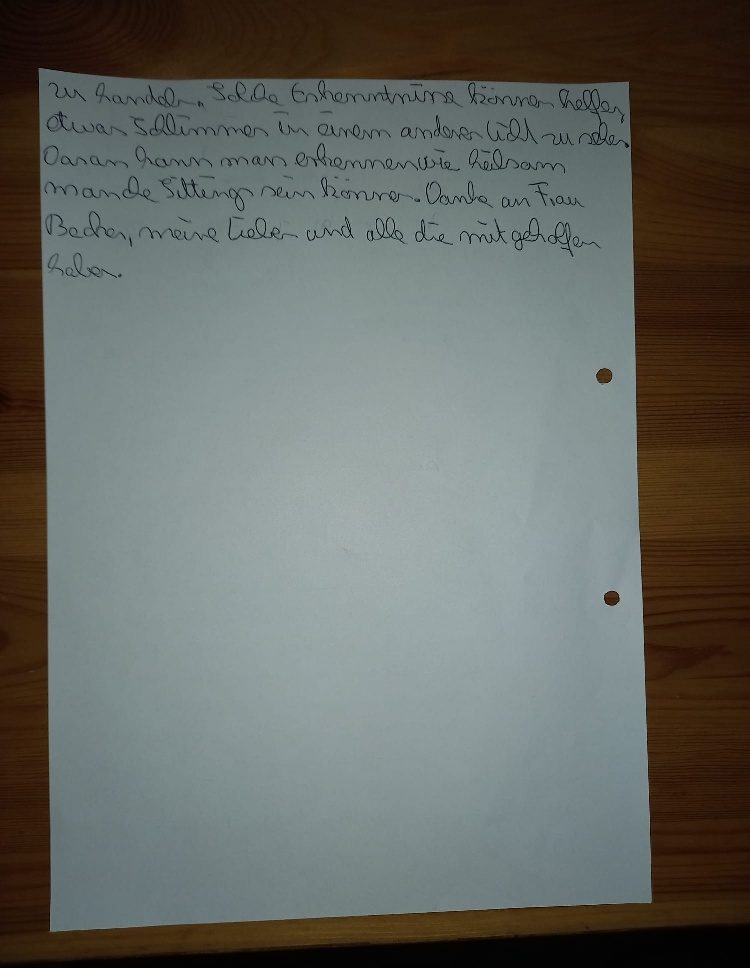 zu handeln. Solche Erkenntnisse können helfen,
etwas Schlimmes in einem anderen Licht zu sehen.
Daran kann man erkennen wie heilsam
manche Sittings sein können. Danke an Frau
Becher, meine Lieben und alle die mit geholfen
haben.